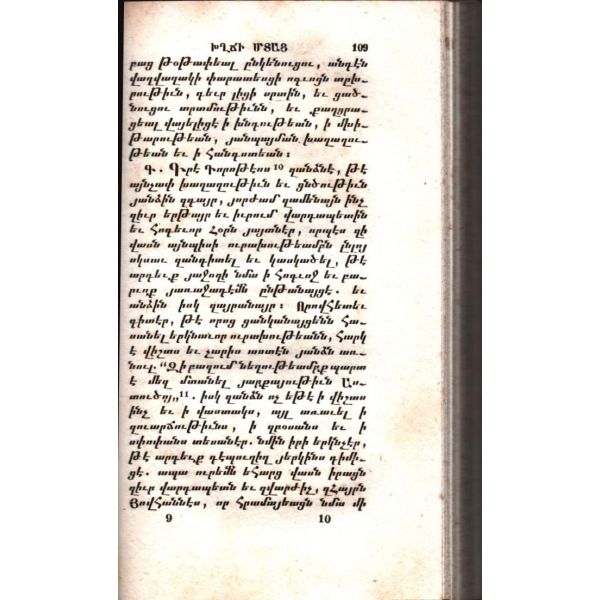 ԽՂՃԻ ՄՏԱՑ 109
բաց թօթափեալ ընկենուցու, անդէն
վաղվաղակի փարատեսցի ողւոցն տըխ֊
րութիւն, դեւր լիցի սրտին, եւ ցած֊
նուցու տրտմութիւնն, եւ քաղցրա֊
ցեալ վայելիցէ ի խնդութեան, ի մխի֊
թարութեան, յանպայման խաղաղու֊
թեան եւ ի հանգստեան:
Գ. Գրէ Դորոթէոս 10 զանձնէ, թէ
այնչափ խաղաղութիւն եւ ցնծութիւն
յանձին զգայր, յորժամ զամենայն ինչ
զիւր երթայր եւ իւրում վարդապետին
եւ հոգեւոր հօրն յայտնէր, որպէս զի
վասն այնպիսի ուրախութեանն ինքը
սկսաւ զանգիտել եւ կասկածել, թէ
արդեւք յաջողի նմա ի հոգւոջ եւ բա֊
րւոք յառաջադէմ ընթանայցէ. եւ
անձին իսկ զայրանայր: Որովհետեւ
գիտէր, թէ որոց ցանկանայցենն հա֊
սանել երկնաւոր ուրախութեանն, հարկ
է վիշտս եւ չարիս աստէն յանձն առ֊
նուլ. “Զի բազում նեղութեամբք պարտ
է մեզ մտանել յարքայութիւն Աս֊
տուծոյ„ 11. իսկ զանձն ոչ եթէ ի վիշտս
ինչ եւ ի վաստակս, այլ առաւել ի
զուարճութիւնս, ի զբօսանս եւ ի
սփոփանս տեսանէր. նմին իրի երկնչէր,
թէ արդեւք դէպուղիղ յերկինս դիմի֊
ցէ. ապա ուրեմն եհարց վասն իրացն
զիւր վարդապետն եւ զվարժիչ, զհայրն
Յովհաննէս, որ հրամայեացն նմա մի
9 10